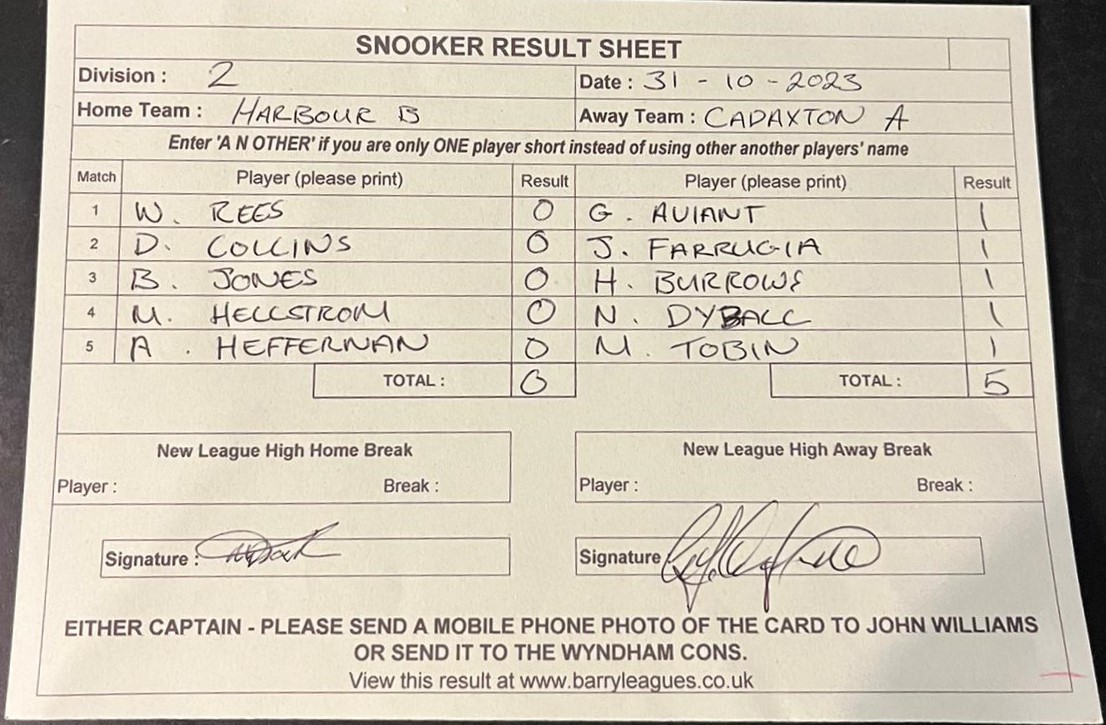 SNOOKER RESULT SHEET
Division : 2 Date : 31 - 10 - 2023
Home Team : HARBOUR B Away Team : CADAXTON A
Enter 'A N OTHER' if you are only ONE player short instead of using other another players' name
Match Player (please print) Result Player (please print) Result
1 W. REES 0 G. AVIANT 1
2 D. COLLINS 0 J. FARRUGIA 1
3 B. JONES 0 H. BURROWS 1
4 M. HELLSTROM 0 N. DYBALL 1
5 A. HEFFERNAN 0 M. TOBIN 1
TOTAL : 0 TOTAL : 5
New League High Home Break New League High Away Break
Player : Break : Player : Break :
Signature : Signature
EITHER CAPTAIN - PLEASE SEND A MOBILE PHONE PHOTO OF THE CARD TO JOHN WILLIAMS
OR SEND IT TO THE WYNDHAM CONS.
View this result at www.barryleagues.co.uk